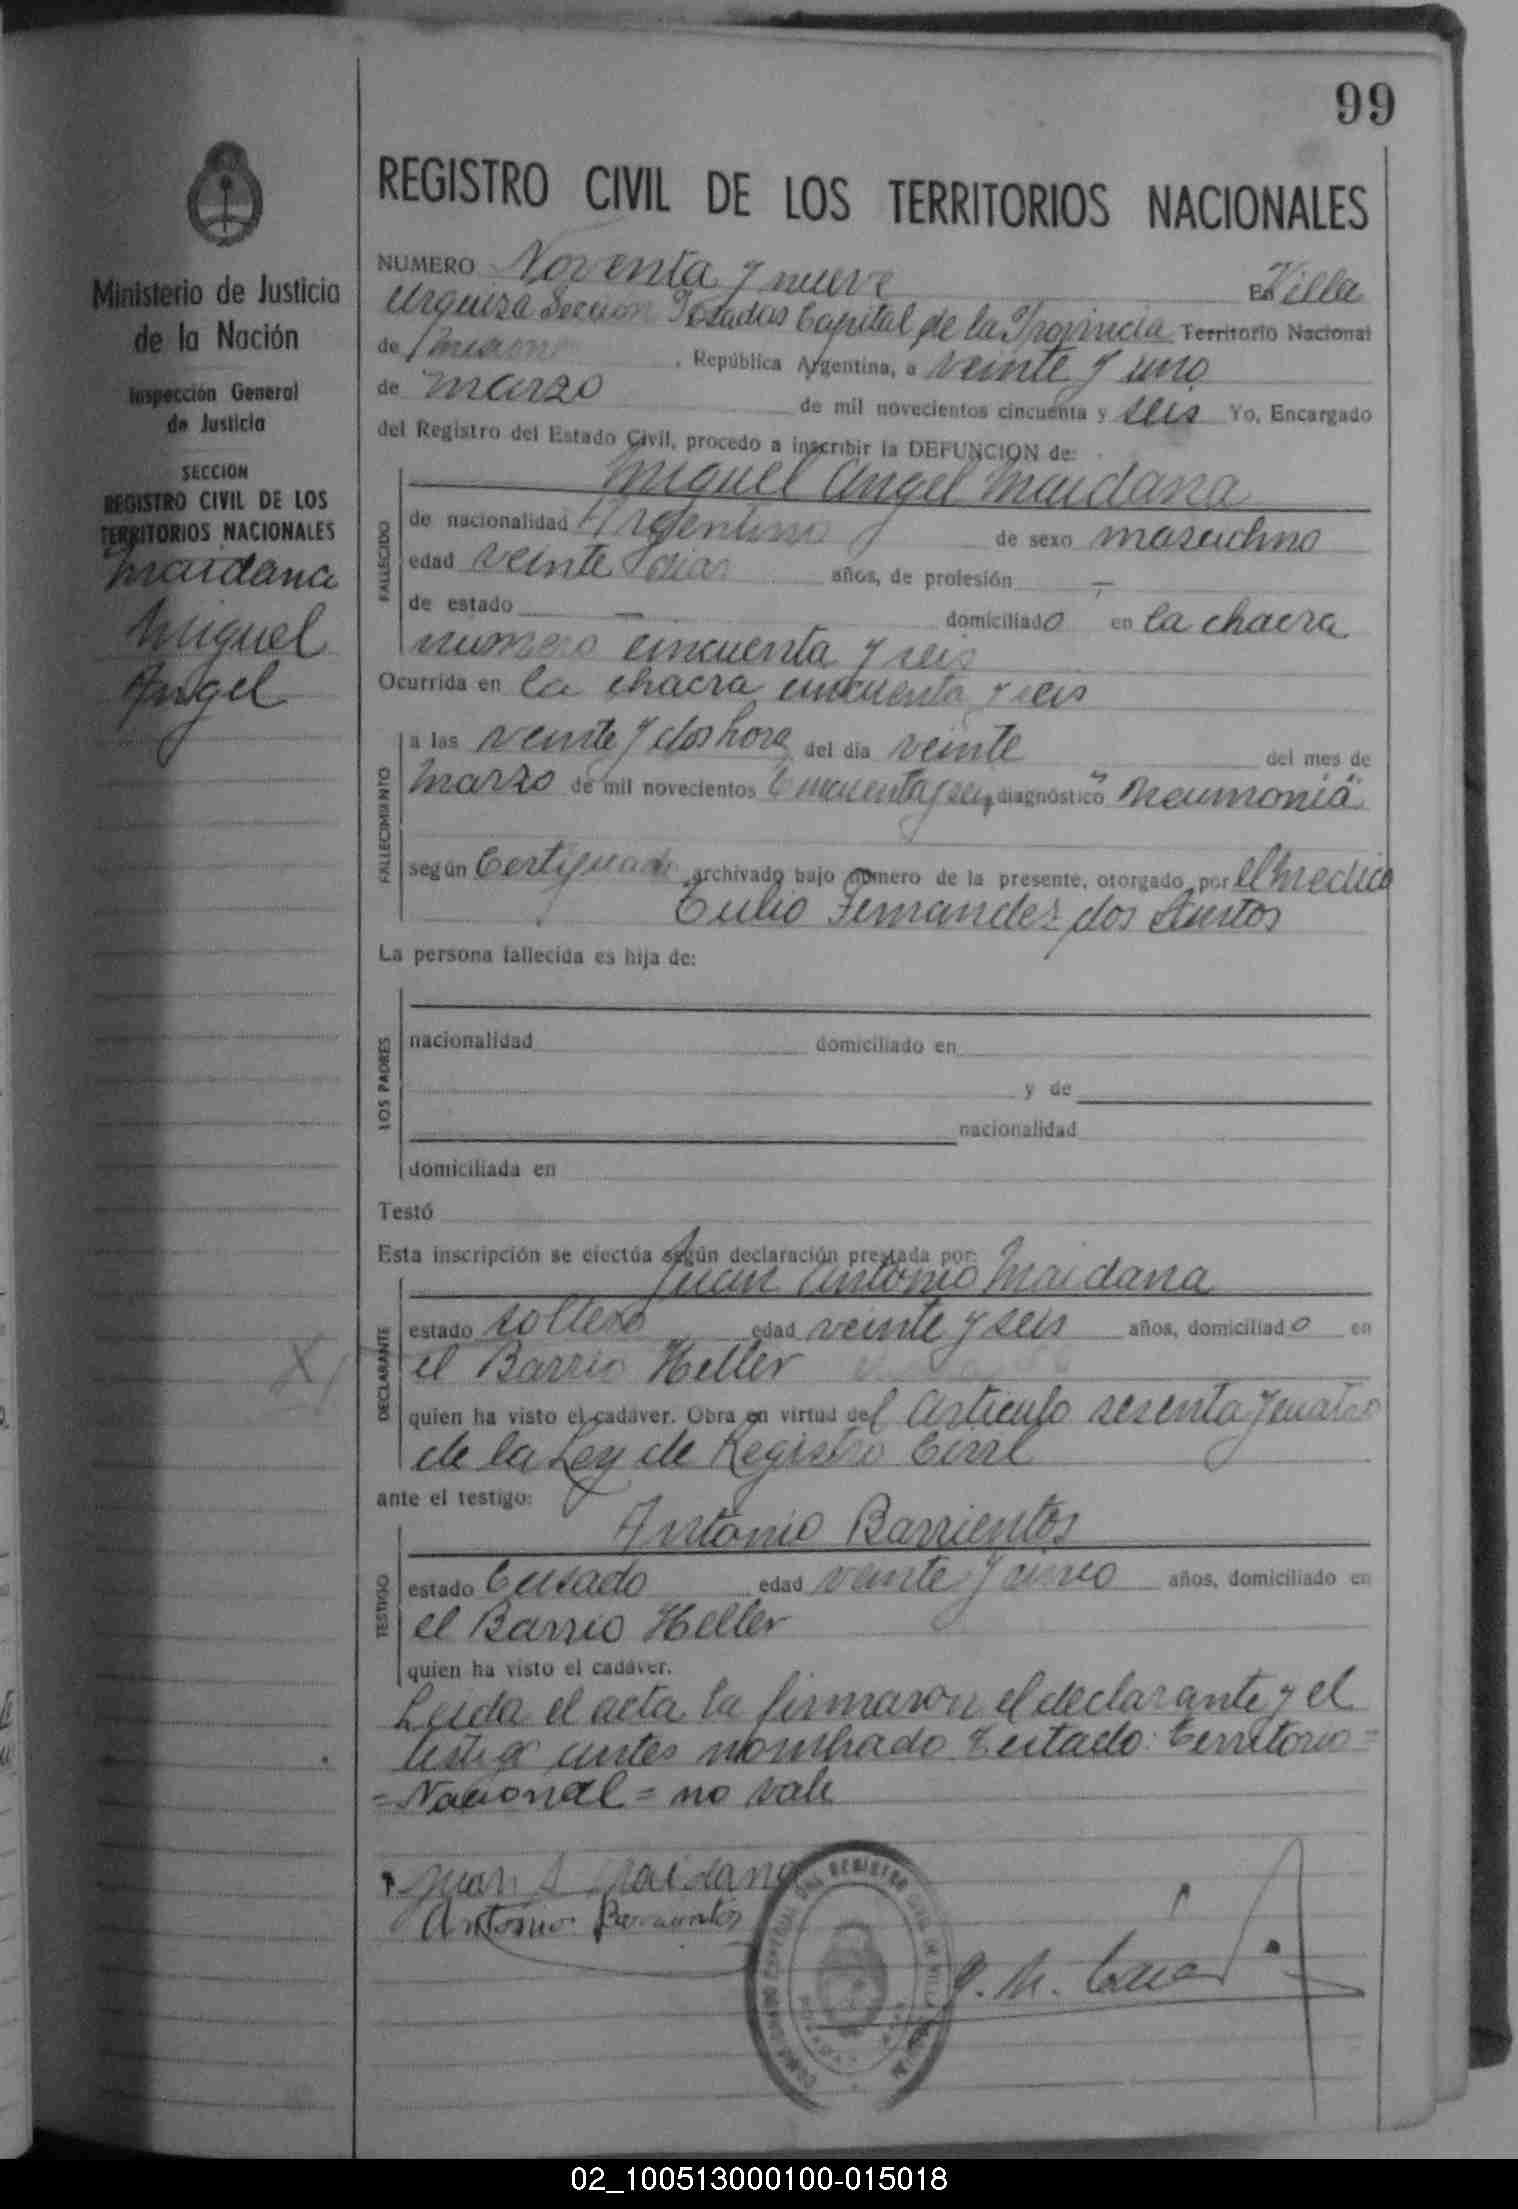 99
Ministerio de Justicia
de la Nación
Inspección General
de Justicia
SECCION
REGISTRO CIVIL DE LOS
TERRITORIOS NACIONALES
Maidana
Miguel
Angel
REGISTRO CIVIL DE LOS TERRITORIOS NACIONALES
NUMERO Noventa y nueve En Villa
Urquiza Seccion Posadas Capital de la Provincia Territorio Nacional
de Misiones, República Argentina, a veinte y uno
de marzo de mil novecientos cincuenta y seis Yo, Encargado
del Registro del Estado Civil, procedo a inscribir la DEFUNCION de:
Miguel Angel Maidana
FALLECIDO
de nacionalidad Argentino de sexo masculino
edad veinte dias años, de profesión —
de estado — domiciliado en la chacra
numero cincuenta y seis
Ocurrida en la chacra cincuenta y seis
FALLECIMIENTO
a las veinte y dos hora del día veinte del mes de
marzo de mil novecientos cincuenta y seis, diagnóstico "Neumonia"
según Certificado archivado bajo número de la presente, otorgado por el medico
Tulio Fernandez dos Santos
La persona fallecida es hija de:
LOS PADRES
nacionalidad domiciliado en
y de
nacionalidad
domiciliada en
Testó
Esta inscripción se efectúa según declaración prestada por:
Juan Antonio Maidana
DECLARANTE
estado soltero edad veinte y seis años, domiciliado en
el Barrio Heller
quien ha visto el cadáver. Obra en virtud del Articulo sesenta y cuatro
de la Ley de Registro Civil
ante el testigo:
Antonio Barrientos
TESTIGO
estado Casado edad veinte y cinco años, domiciliado en
el Barrio Heller
quien ha visto el cadáver.
Leida el acta la firmaron el declarante y el
testigo antes nombrado Testado: Territorio =
= Nacional = no vale
Juan A Maidana
Antonio Barrientos
02_100513000100-015018